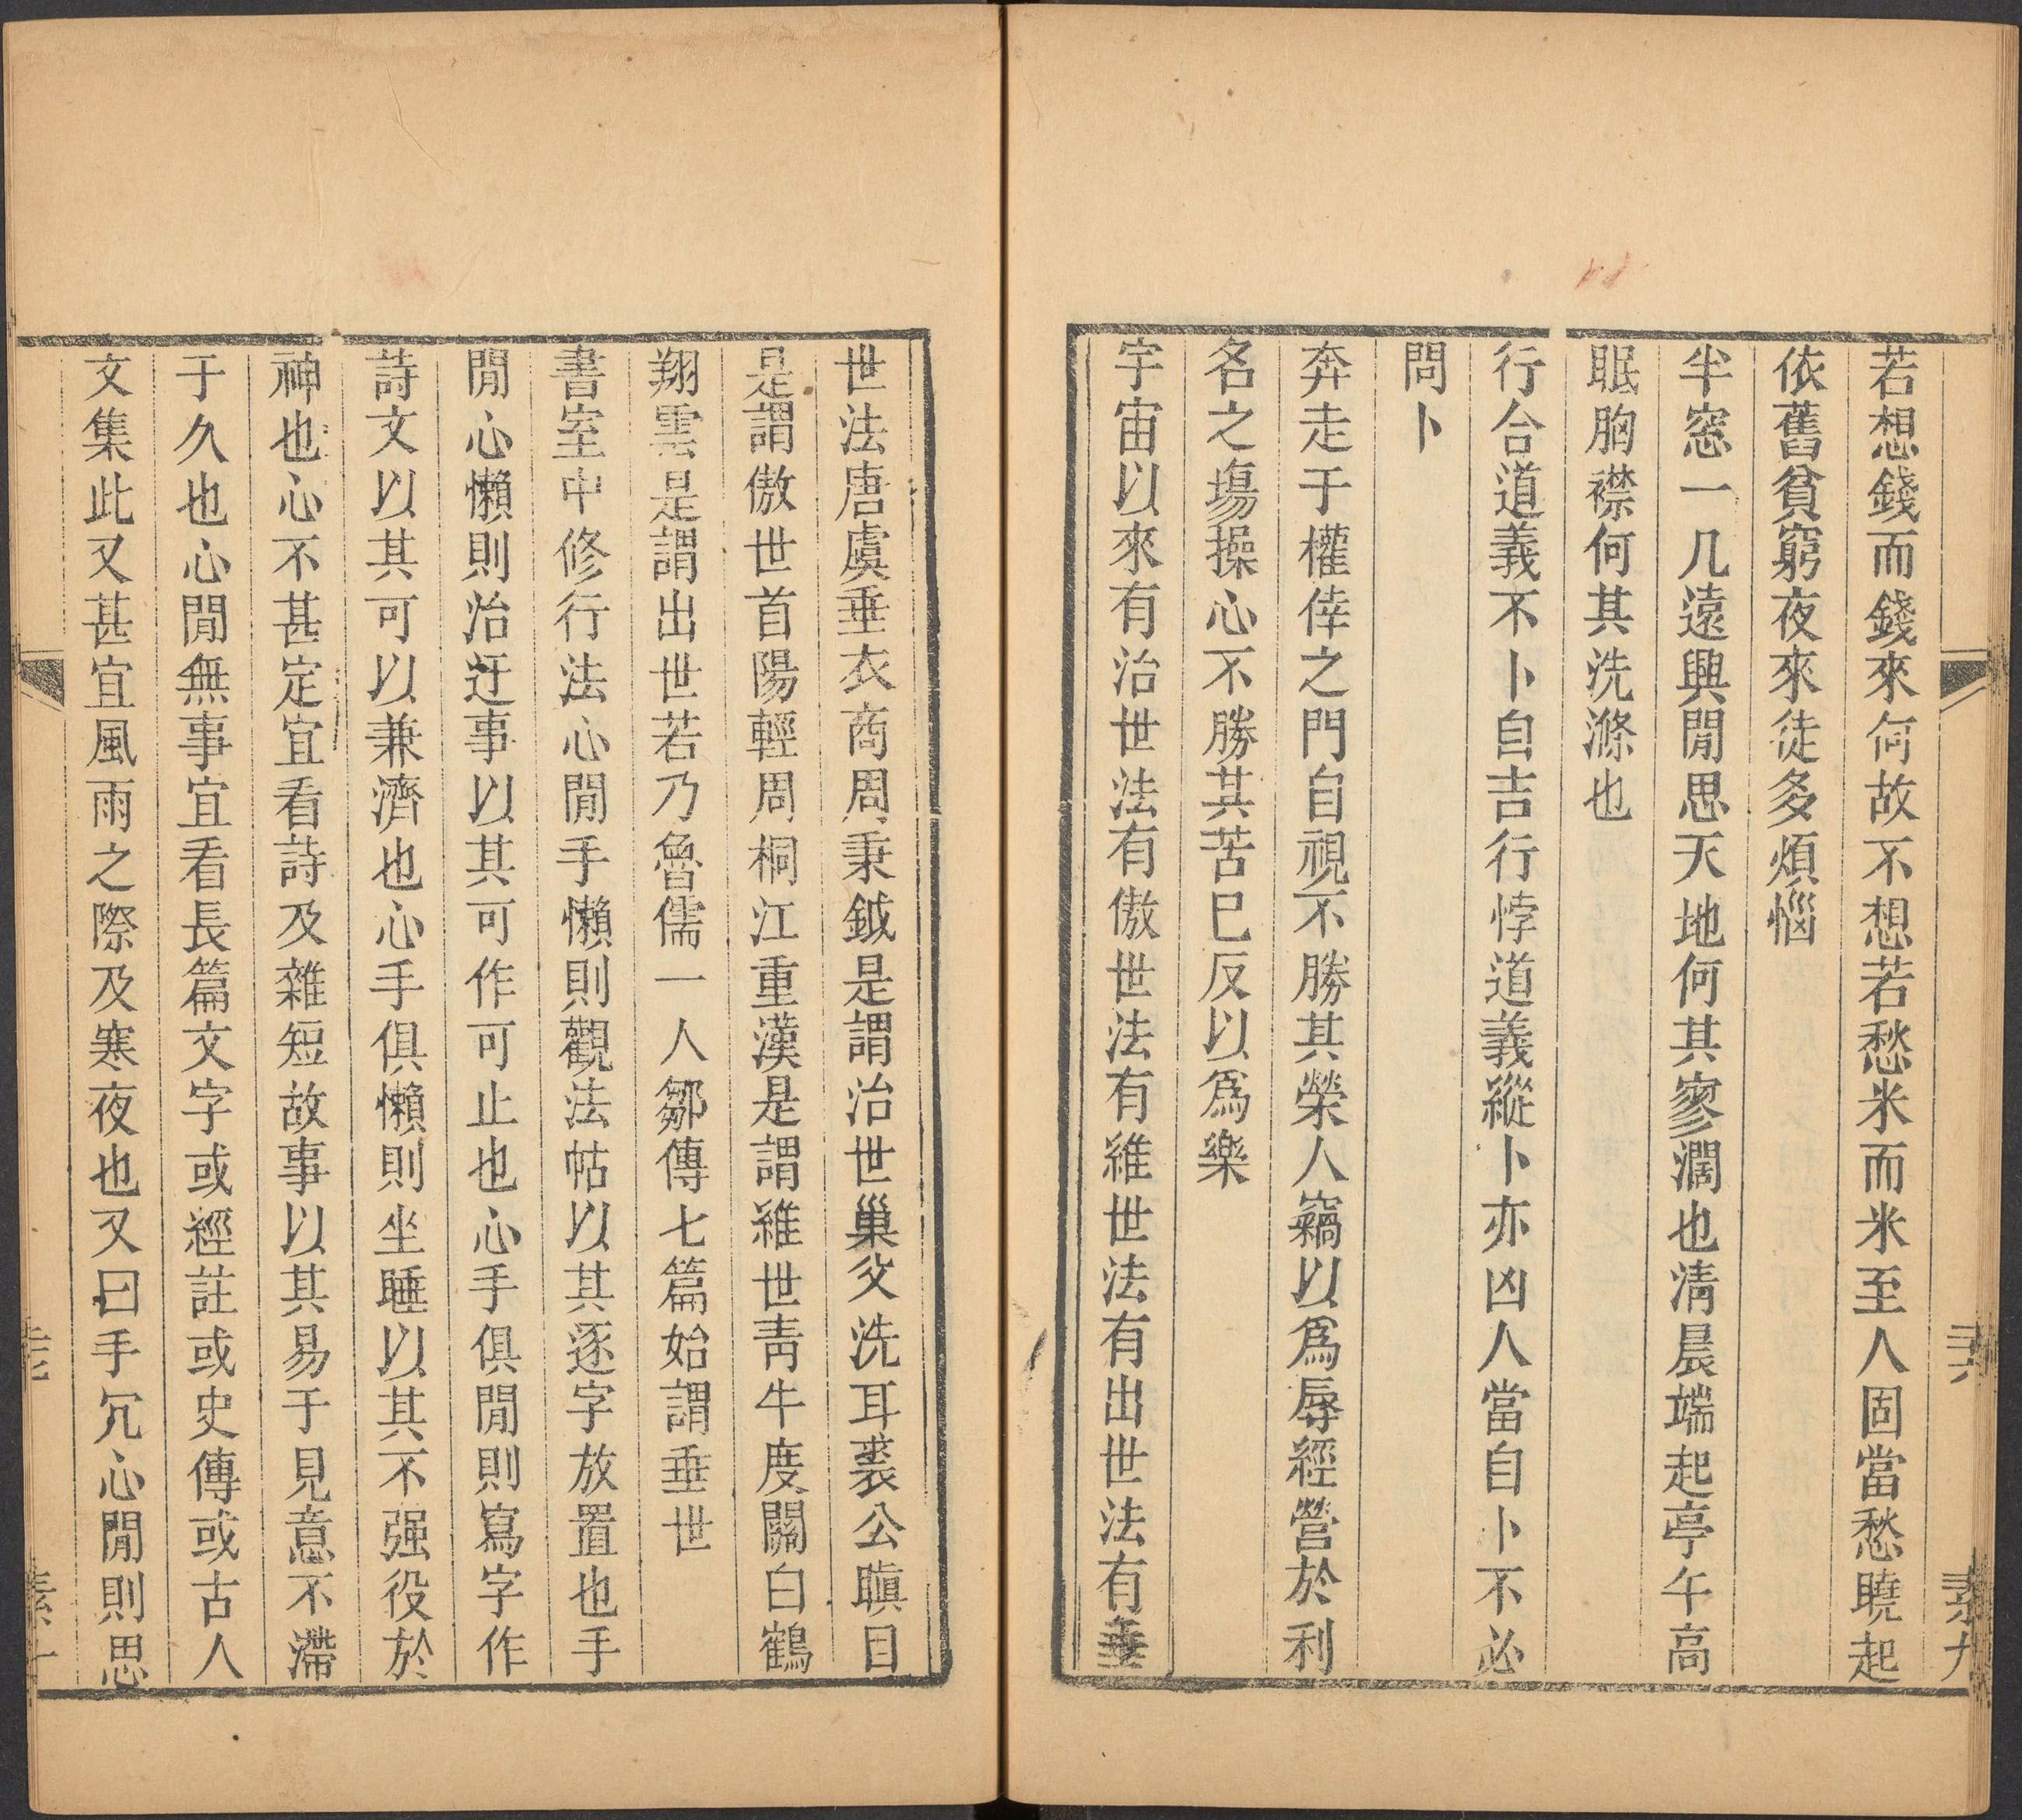 若想錢而錢來何故不想若愁米而米至人固當愁曉起
依舊貧窮夜來徒多煩惱
半窓一几遠興閒思天地何其寥濶也淸晨端起亭午高
眠胸襟何其洗滌也
行合道義不卜自吉行悖道義縱卜亦凶人當自卜不必
問卜
奔走于權倖之門自視不勝其榮人竊以爲辱經營於利
名之塲操心不勝其苦巳反以爲樂
宇宙以來有治世法有傲世法有維世法有出世法有垂
世法唐虞垂衣商周秉鉞是謂治世巢父洗耳裘公瞋目
是謂傲世首陽輕周桐江重漢是謂維世靑牛度關白鶴
翔雲是謂出世若乃魯儒一人鄒傳七篇始謂垂世
書室中修行法心閒手懶則觀法帖以其逐字放置也手
閒心懶則治迂事以其可作可止也心手俱閒則寫字作
詩文以其可以兼濟也心手俱懶則坐睡以其不强役於
神也心不甚定宜看詩及雜短故事以其易于見意不滯
于久也心閒無事宜看長篇文字或經註或史傳或古人
文集此又甚宜風雨之際及寒夜也又曰手冗心閒則思